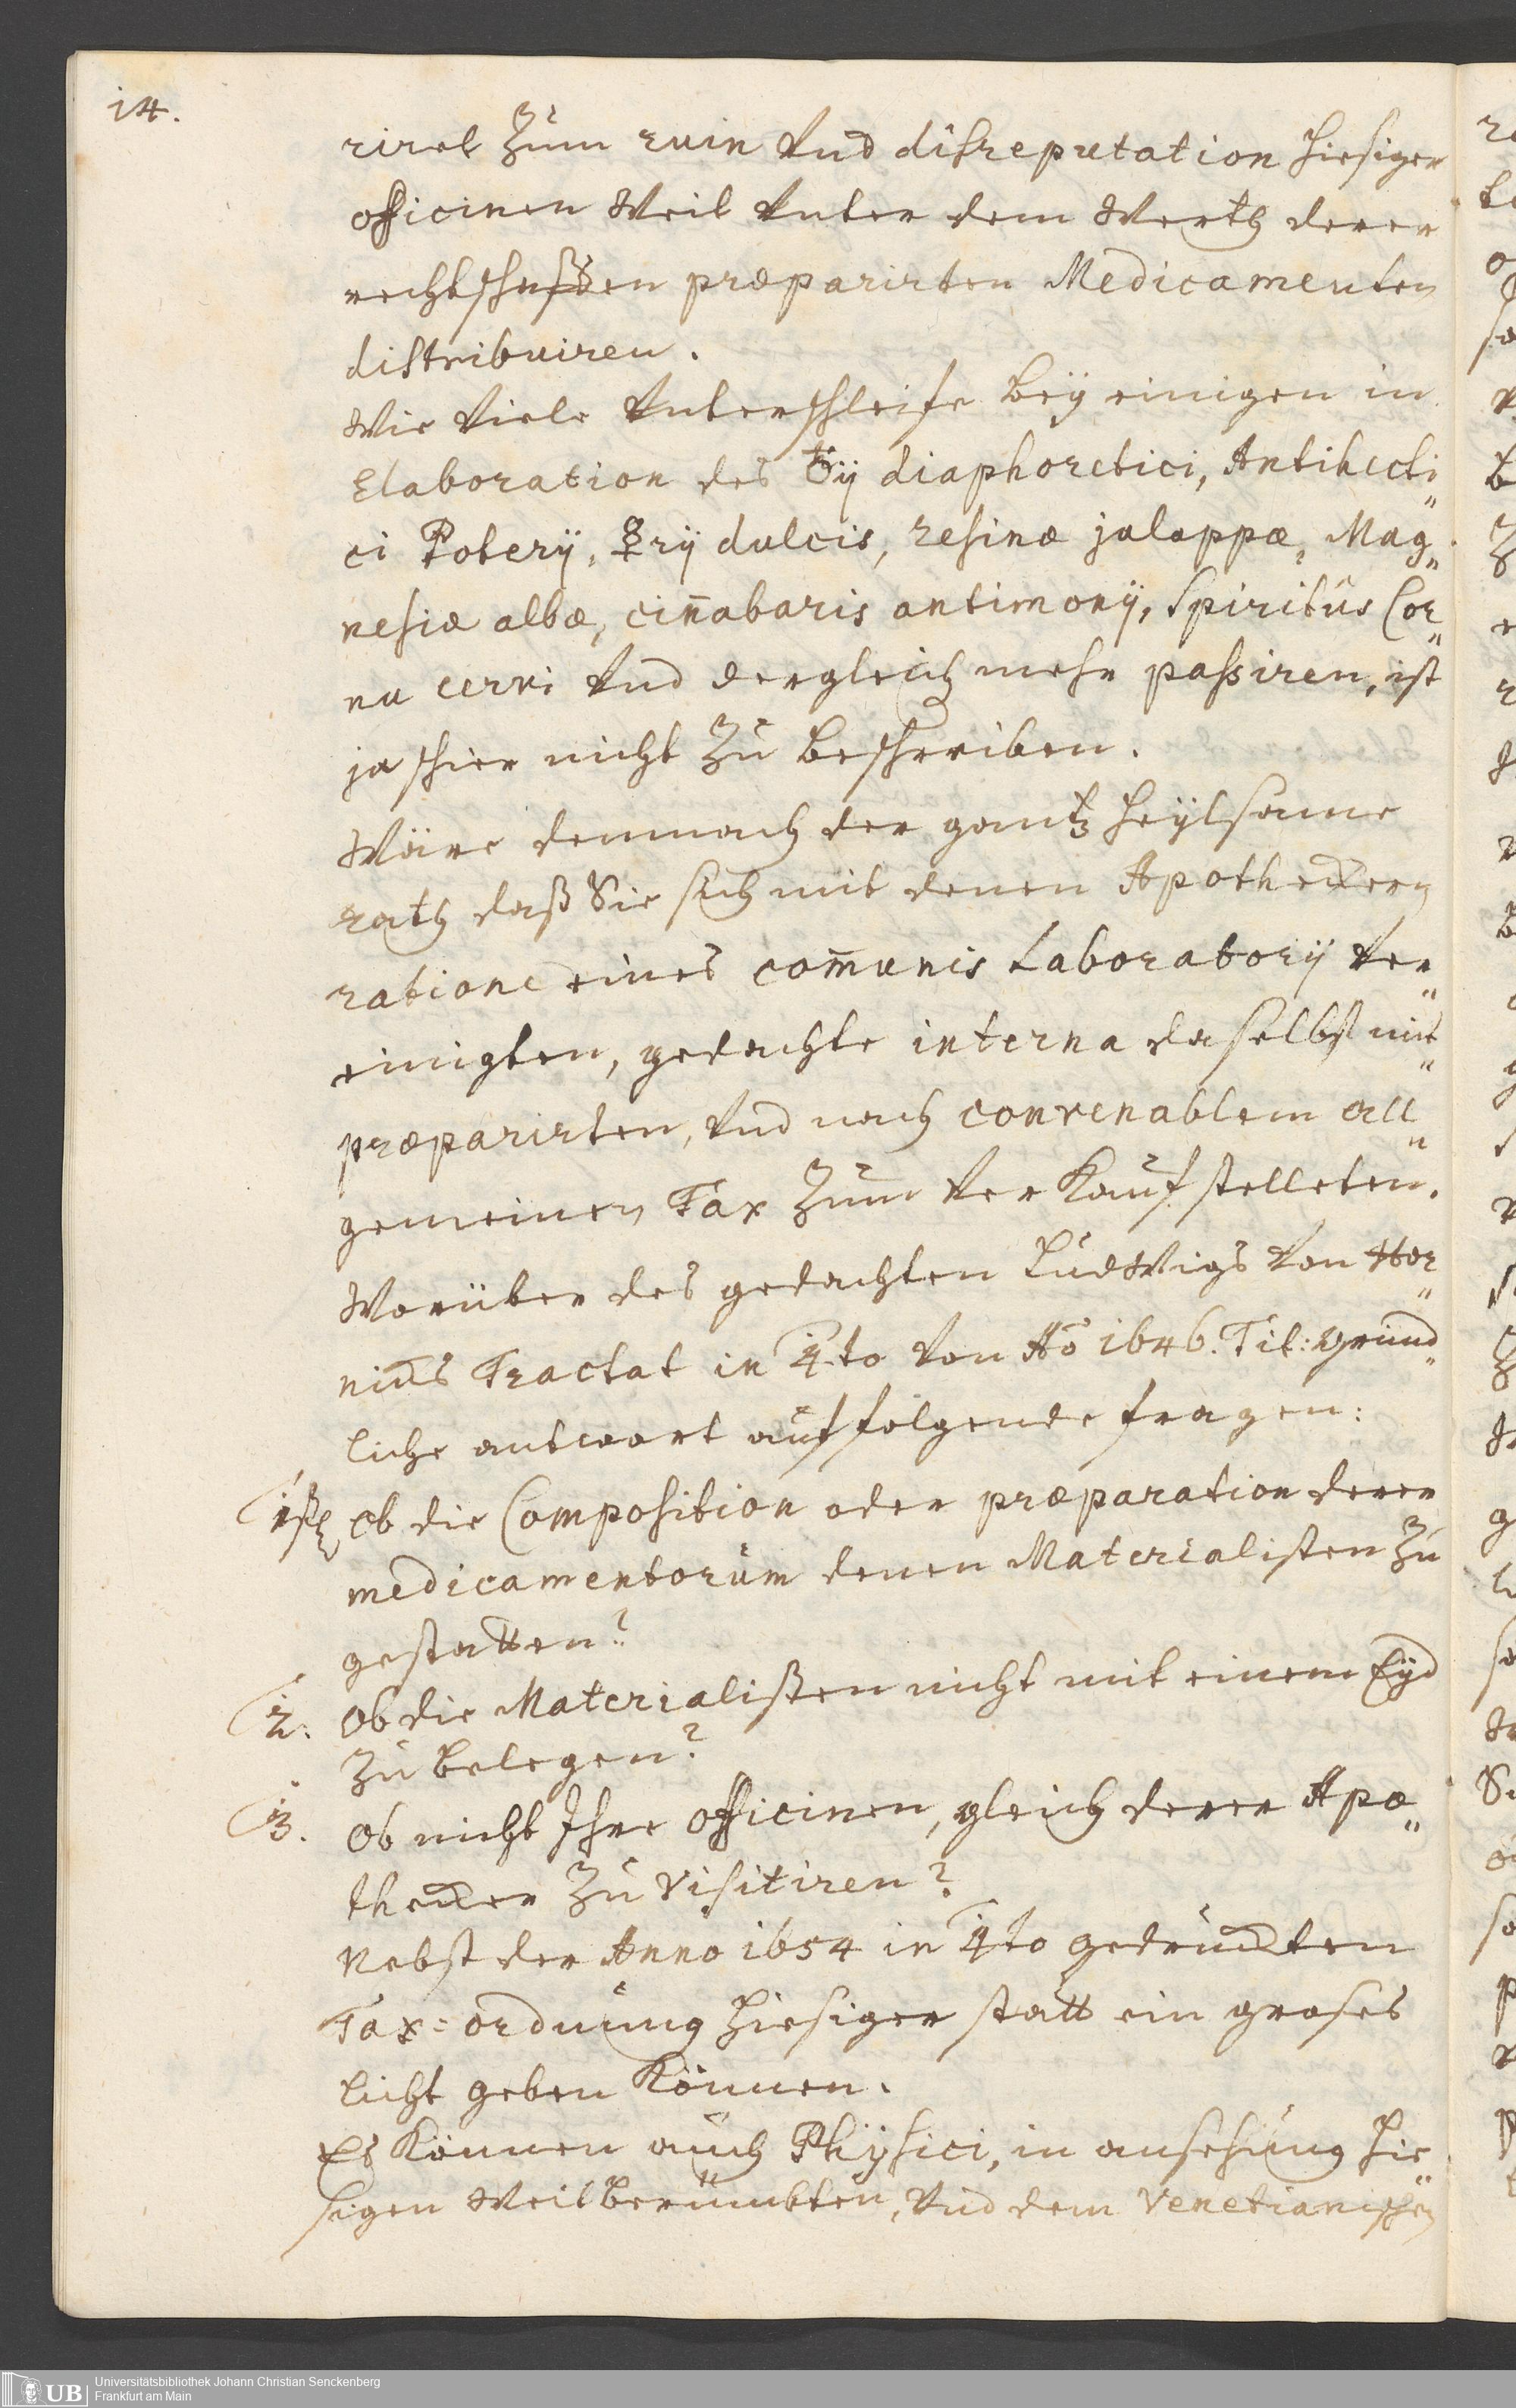 14.
riret Zum ruin Vnd disreputation hiesiger
officinen Weil Vnter dem Werth derer
rechtschaffen præparirten Medicamenten
distribuiren.
Wie Viele Vnterschleife bey einigen in
Elaboration des ♁ÿ diaphoretici, Antihecti„
ci Poterÿ, ☿rÿ dulcis, resinæ jalappæ, Mag„
nesiæ albæ, cin̄abaris antimonÿ, Spiritus Cor„
nu cervi Vnd dergleich mehr passiren, ist
ja schier nicht Zu beschreiben.
Wäre demnach der gantz heÿlsame
rath daß Sie sich mit denen Apotheckern
ratione eines com̄unis Laboratorÿ Ver„
einigten, gedachte interna daselbst mit„
præparirten, Vnd nach convenablem all„
gemeinen Tax Zum Verkauf stelleten.
Worüber des gedachten Ludwigs Von Hor„
nicks Tractat in 4.to Von Aō 1646. Tit: gründ„
liche antwort auf folgende fragen:
1stl ob die Composition oder præparation derer
medicamentorum denen Materialisten Zu
gestatten?
2. Ob die Materialisten nicht mit einem Eÿd
Zu belegen?
3. Ob nicht Ihre officinen, gleich derer Apo„
thecker Zu Visitiren?
Nebst der Anno 1654 in 4to gedruckten
Tax=ordnung hiesiger statt ein groses
licht geben können.
Es können auch Phÿsici, in ansehung hie„
sigen Weitberümbten, Vnd dem Venetianischen
UB
Universitätsbibliothek Johann Christian Senckenberg
Frankfurt am Main